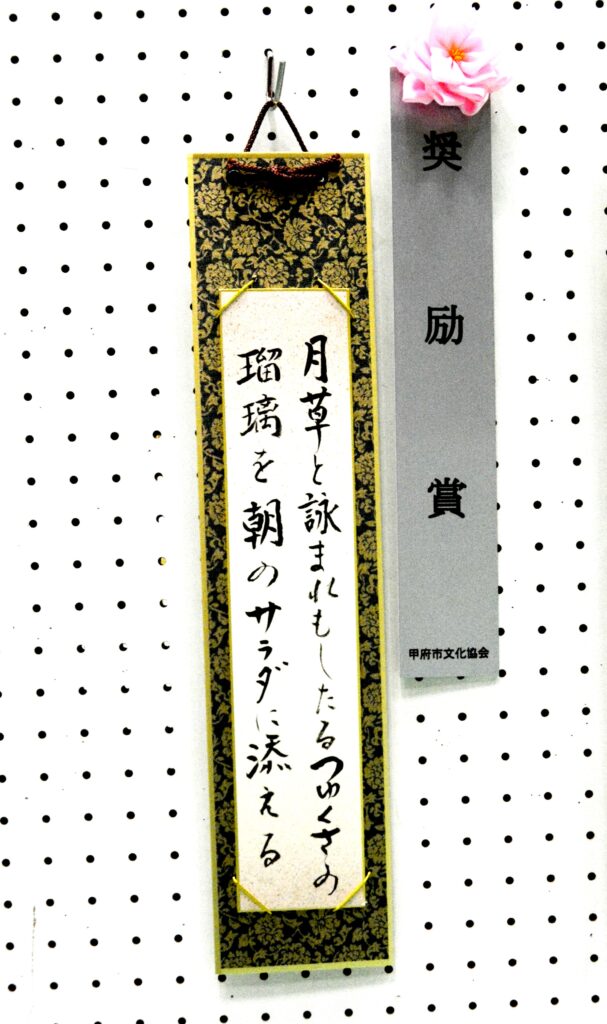 奨励賞
甲府市文化協会
月草と詠まれもしたるつゆくさの
瑠璃を朝のサラダに添える